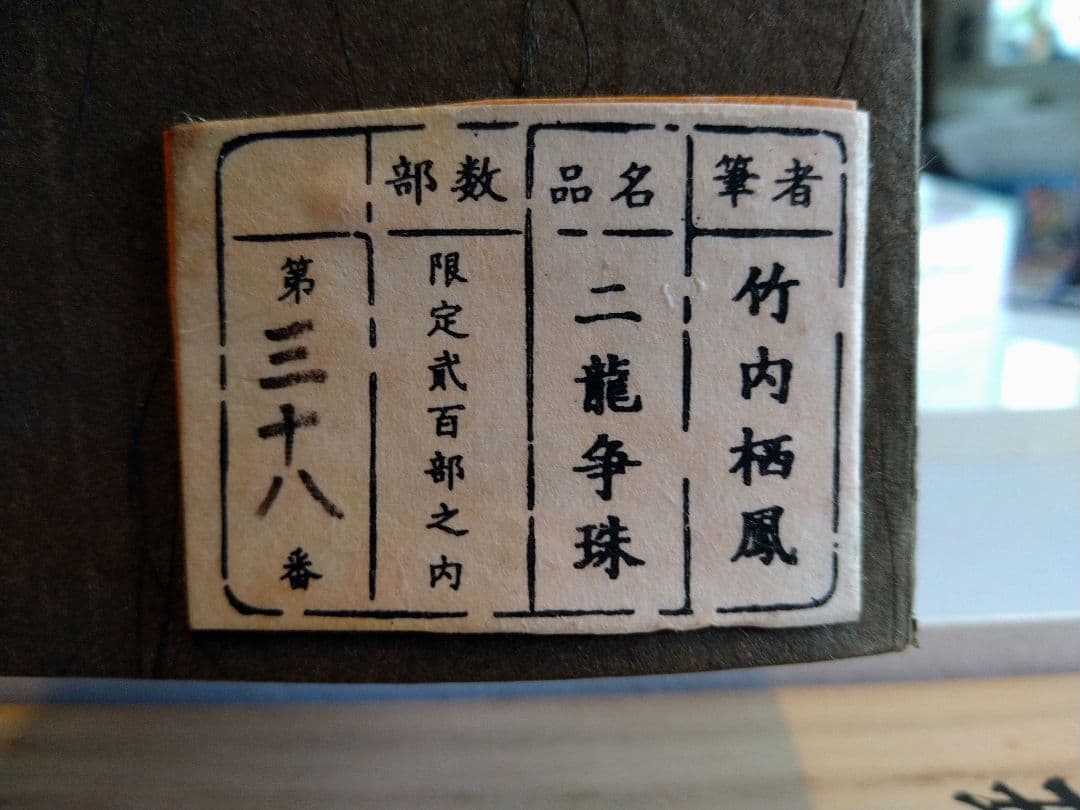 筆者
竹内栖鳳
品名
二龍争珠
部数
限定貳百部之内
第三十八番